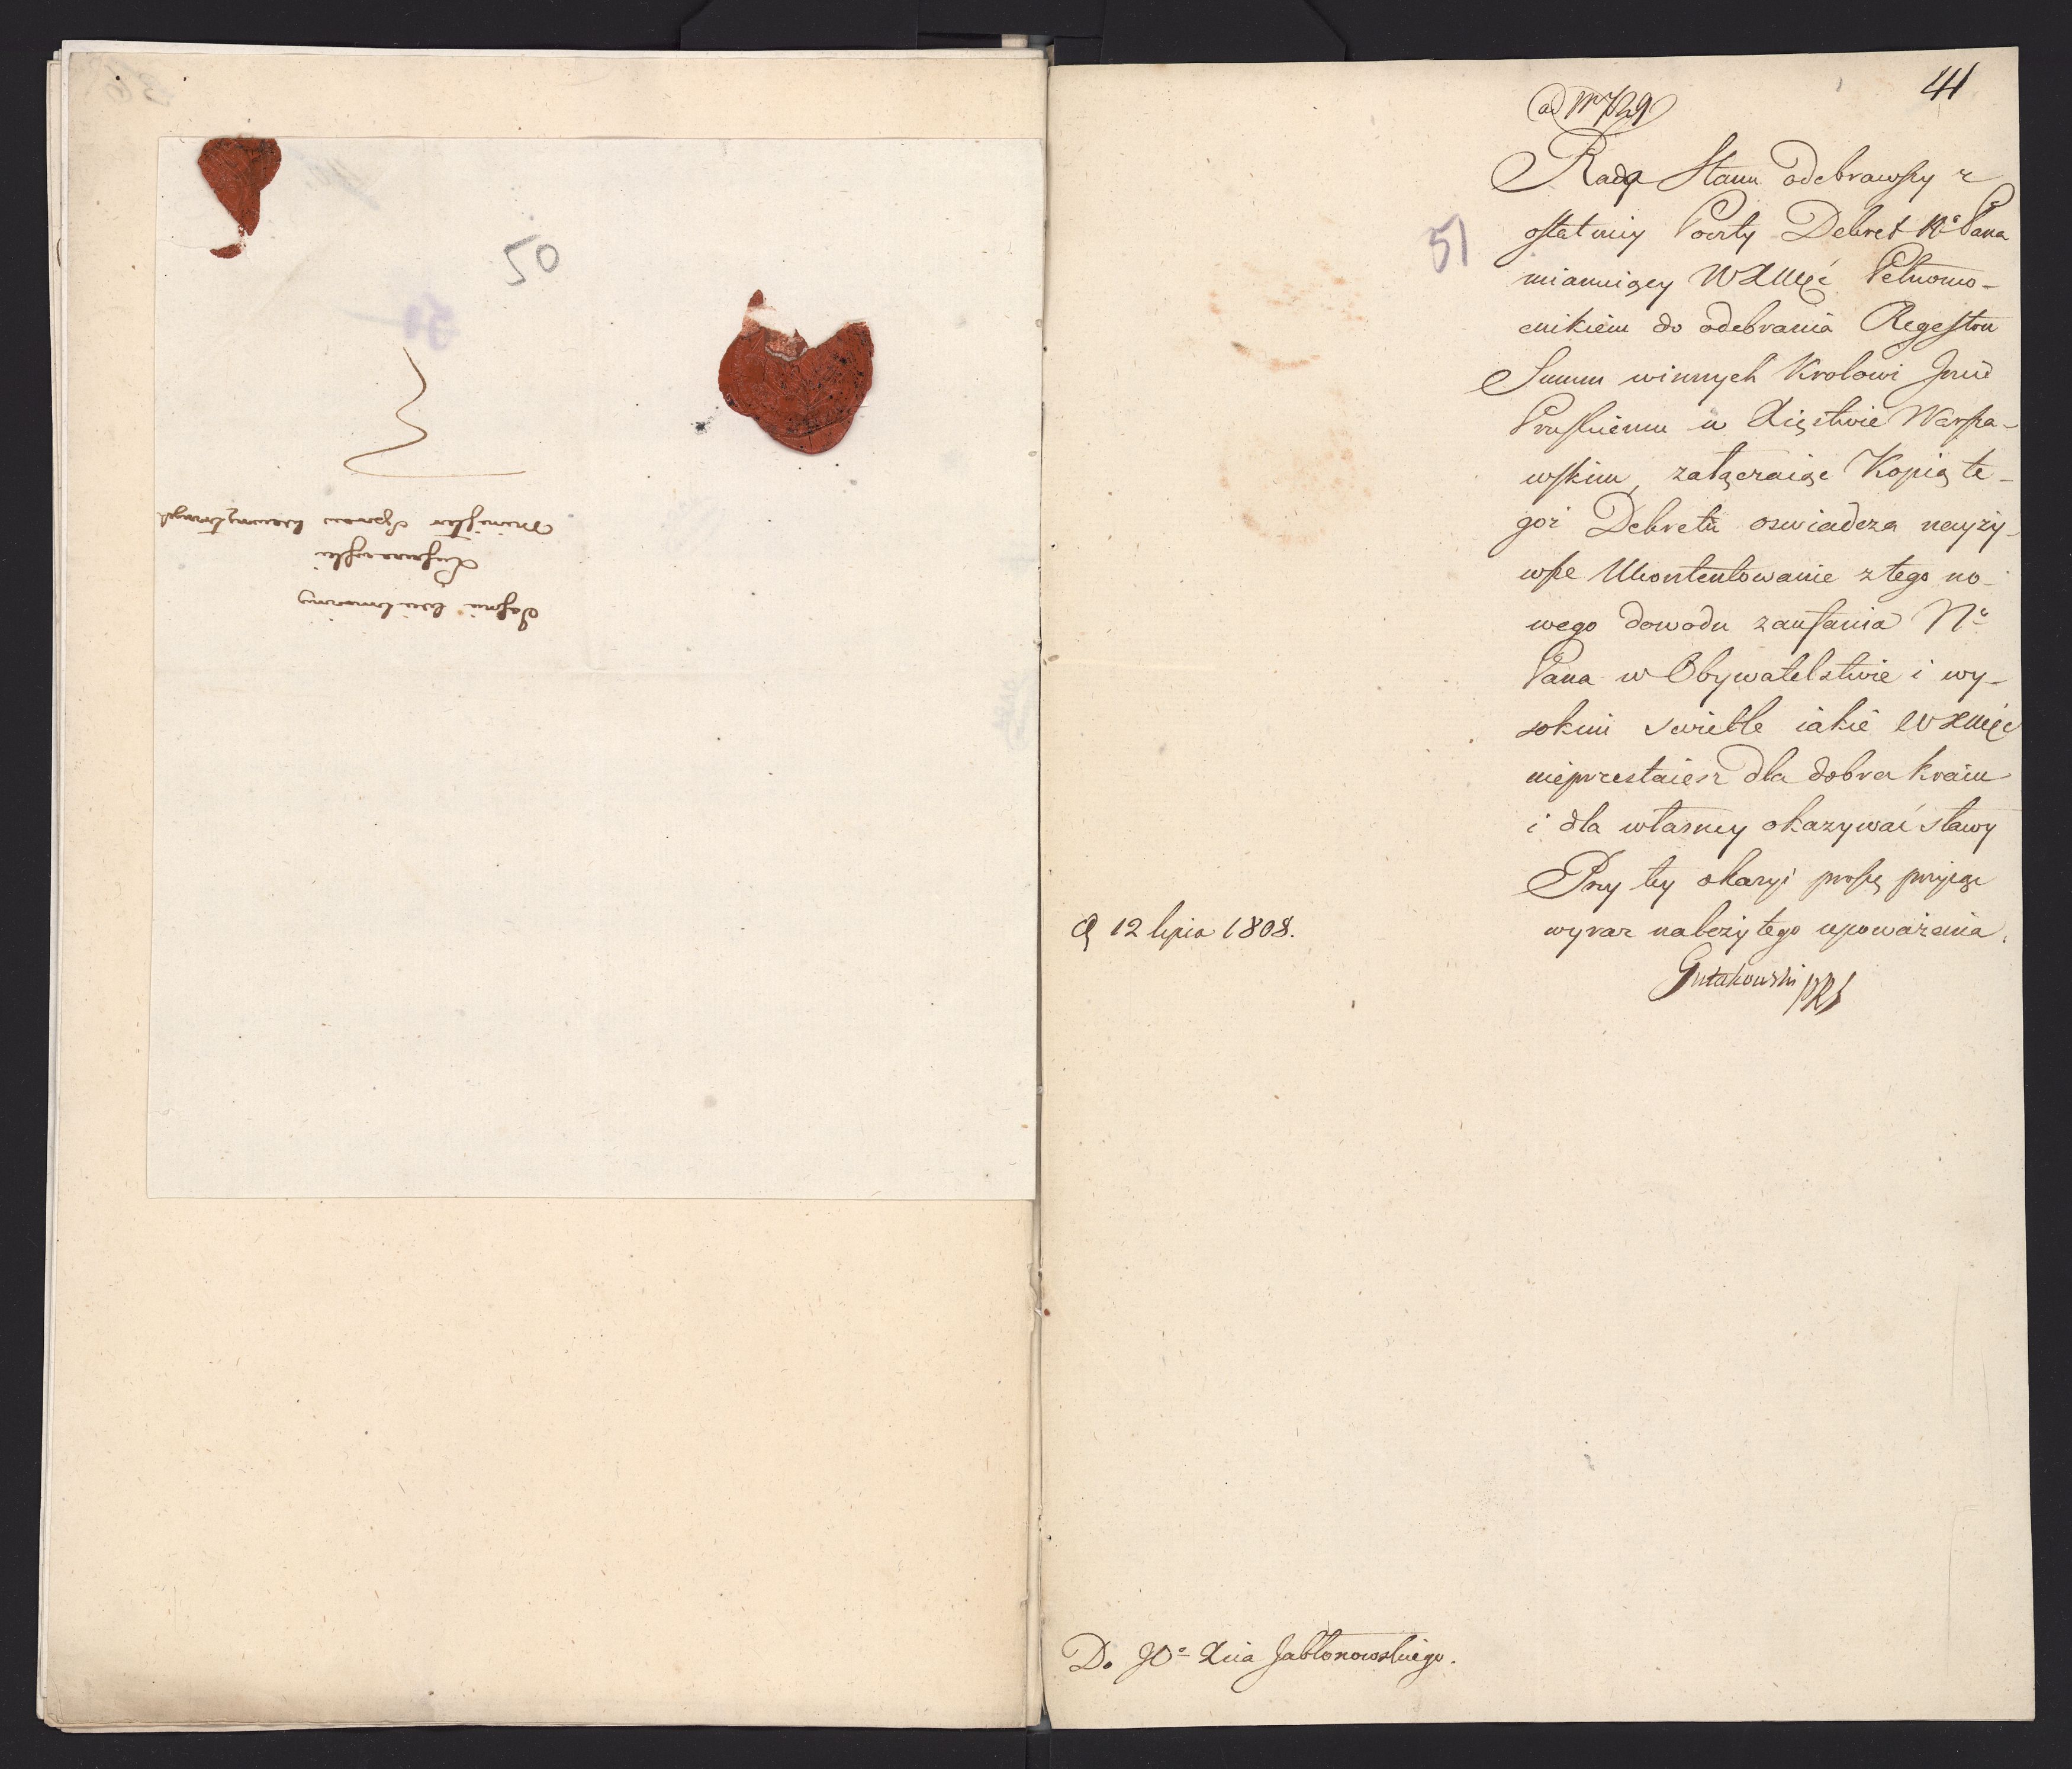 50
Minister Spraw wewnętrznych
41
ad Nr 729
51
Rada Stanu odebrawszy z
ostatniy Poczty Dekret No Pana
mianuiący WXMść Pełnomo-
cnikiem do odebrania Regestru
Summ winnych Krolowi Jmci
Pruskiemu w Xięstwie Warsza-
wskim, załączaiąc Kopią te-
goż Dekretu oswiadcza nayży-
wsze Ukontentowanie z tego no-
wego dowodu zaufania No
Pana w Obywatelstwie i wy-
sokim swietle iakie WXMść
nieprzestaiesz dla dobra kraiu
i dla własney okazywać sławy
Przy tey okazyi proszę przyjąć
wyraz należytego upoważenia.
Gutakowski PRS
D 12 lipca 1808.
Do JO= Xcia Jabłonowskiego.